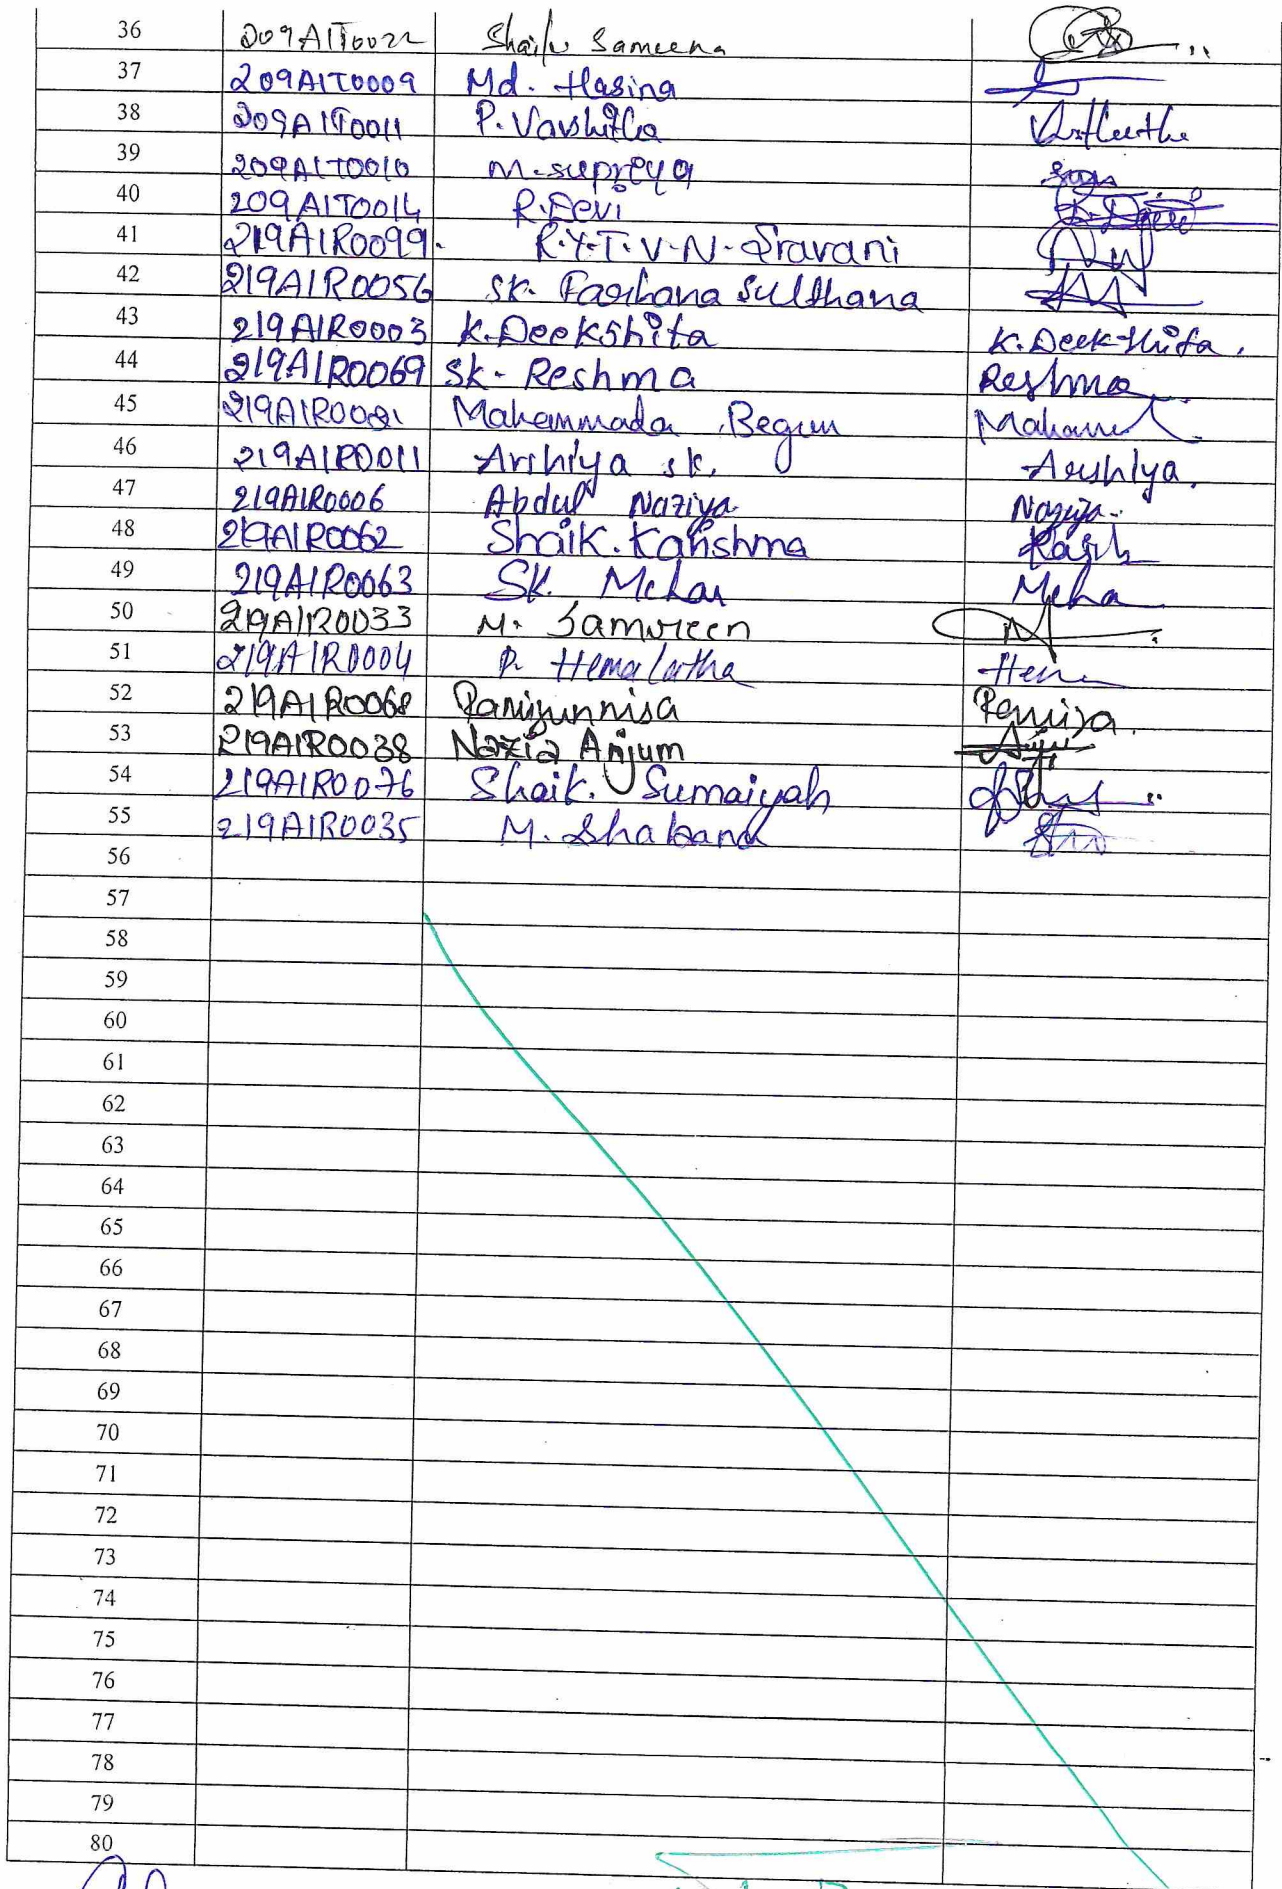 36 209A1T0022 Shaik Sameena
37 209A1T0009 Md. Hasina
38 209A1T0011 P. Varshitha
39 209A1T0010 M. supreya
40 209A1T0014 R. Devi R. Devi
41 219A1R0099. R.Y.T.V.N. Sravani
42 219A1R0056 SK. Farhana Sulthana
43 219A1R0003 K. Deekshita K. Deekshita.
44 219A1R0069 SK. Reshma Reshma
45 Mahammada Begum
46 219A1R0011 Arshiya sk. Arshiya.
47 219A1R0006 Abdul Naziya Naziya.
48 219A1R0062 Shaik. Karishma
49 219A1R0063 SK. Mehar Meha
50 219A1R0033 M. Samreen
51 219A1R0004 P. Hemalatha Hema
52 219A1R0068 Ramizunnisa Ramiza.
53 219A1R0038 Nazia Anjum
54 219A1R0076 Shaik. Sumaiyah
55 219A1R0035 M. Shabana
56
57
58
59
60
61
62
63
64
65
66
67
68
69
70
71
72
73
74
75
76
77
78
79
80